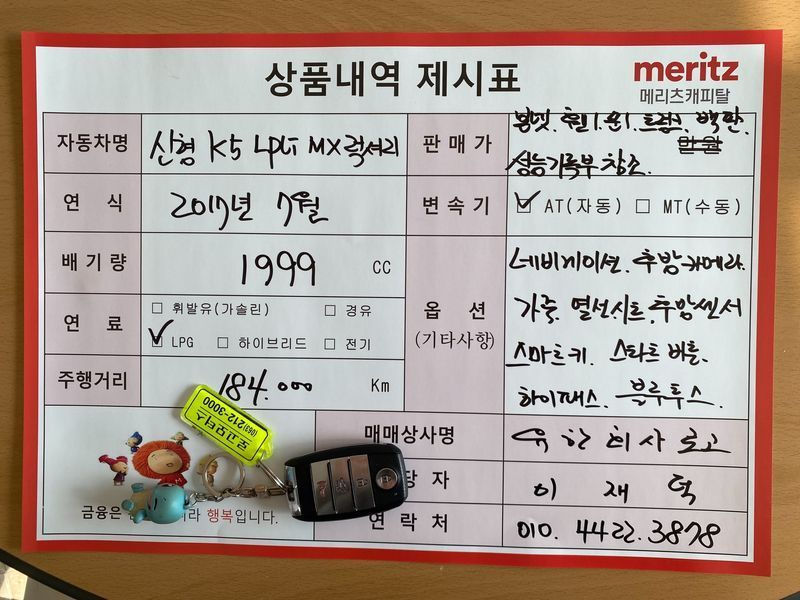 상품내역 제시표
meritz
메리츠캐피탈
자동차명 신형 K5 LPLi MX럭셔리
판매가 봉넷. 휀1.문1. 트렁크. 백판.
만원
성능기록부 참조.
연 식 2017년 7월
변속기 ☑ AT(자동) ☐ MT(수동)
배기량 1999 CC
옵 션
(기타사항)
네비게이션. 후방카메라.
가죽. 열선시트. 후방센서
스마트키. 스타트버튼.
하이패스. 블루투스.
연 료 ☐ 휘발유(가솔린) ☐ 경유
☑ LPG ☐ 하이브리드 ☐ 전기
주행거리 184.000 Km
로고모터스
(063)212-3000
매매상사명 유한회사 로고
당자 이 재 덕
연락처 010. 4422. 3878
금융은
라 행복입니다.